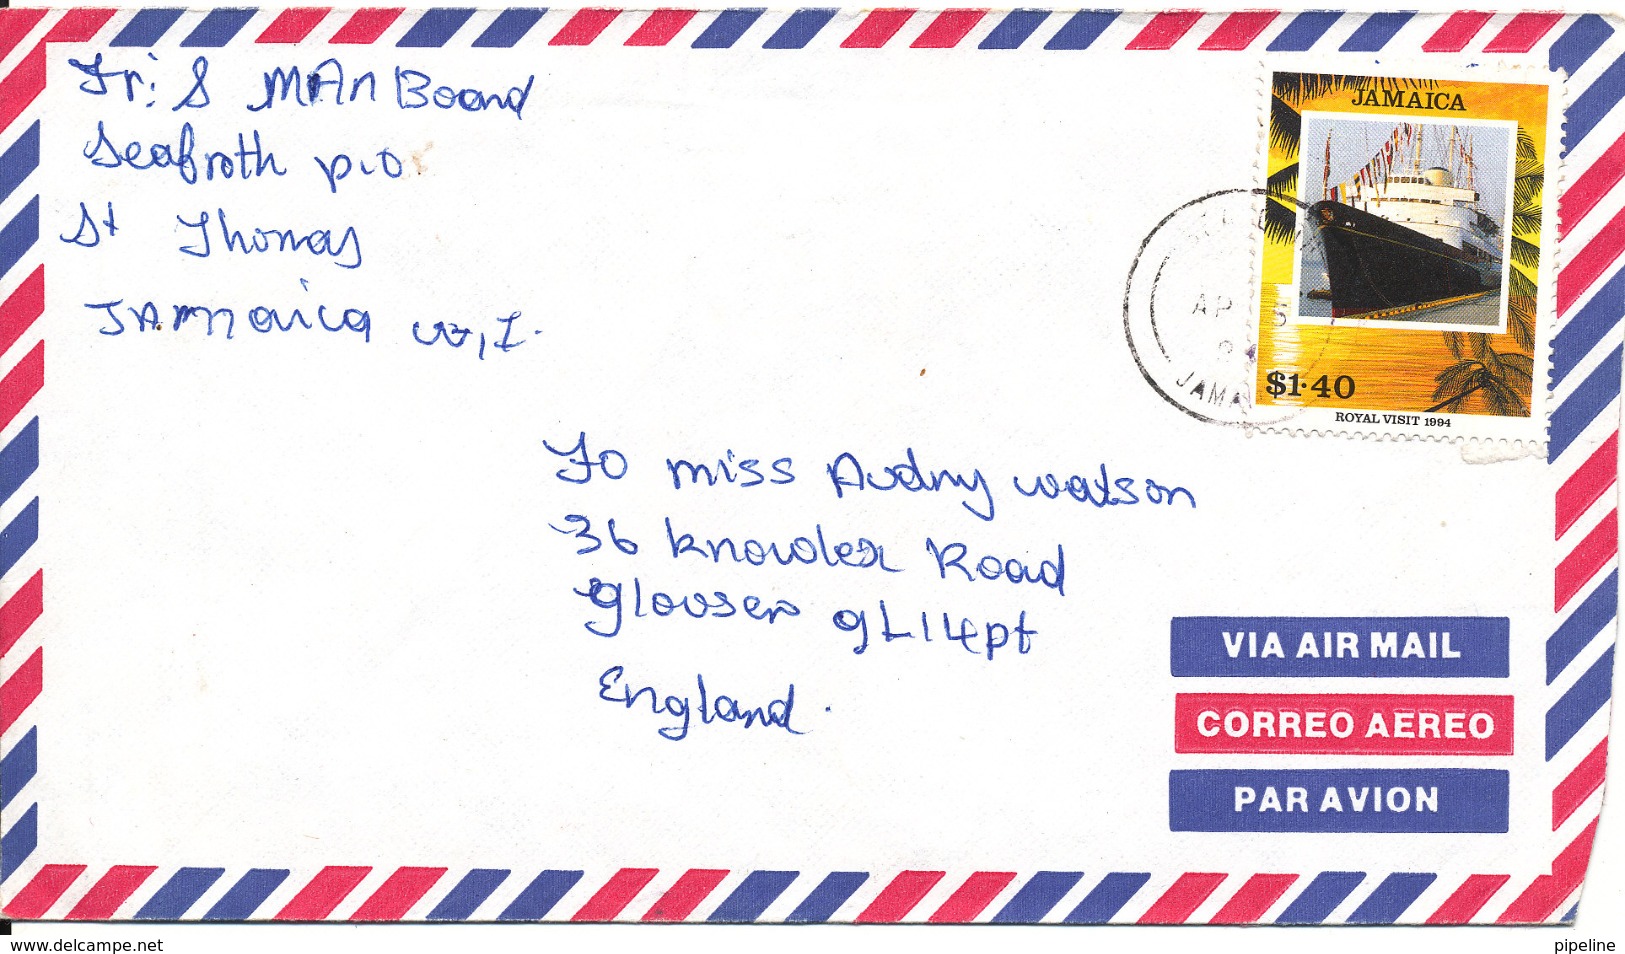 Fr: S MAnBoard
Seafroth p.o.
St Thomas
JAmaica w,I.
JAMAICA
AP 5
JAMA
$1·40
ROYAL VISIT 1994
To miss Audry watson
36 knowles Road
glouser gL14pt
England.
VIA AIR MAIL
CORREO AEREO
PAR AVION
www.delcampe.net
pipeline